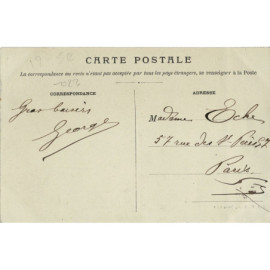 CARTE POSTALE
La correspondance au verso n'étant pas acceptée par tous les pays étrangers, se renseigner à la Poste
CORRESPONDANCE
ADRESSE
Gros baisers
George
Madame Eche
57 rue des Sts Pères
Paris